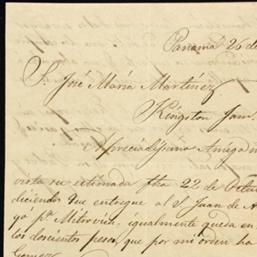 Panamá 26 de
S. José María Martínez
Kingston Jam.
Apreciadísimo Amigo
vista su estimada fha 22 de
diciendo que entregue al S Juan de A
igualmente queda en
los doscientos pesos que por mi orden ha